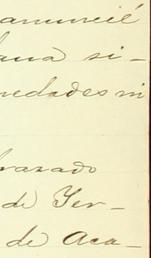 anuncié
hana si-
nedades ni
brazado
de Yer-
de Aca-